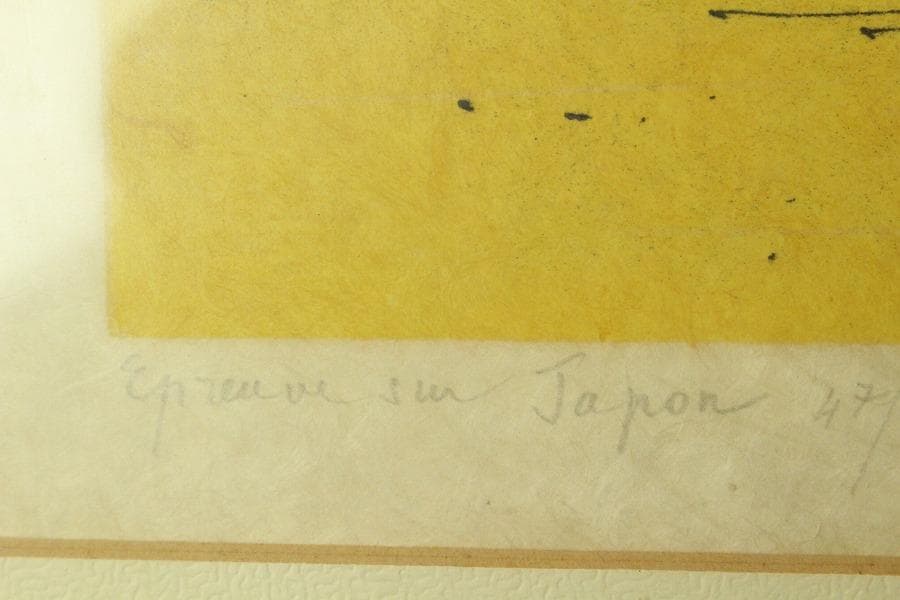 Epreuve sur Japon 47/